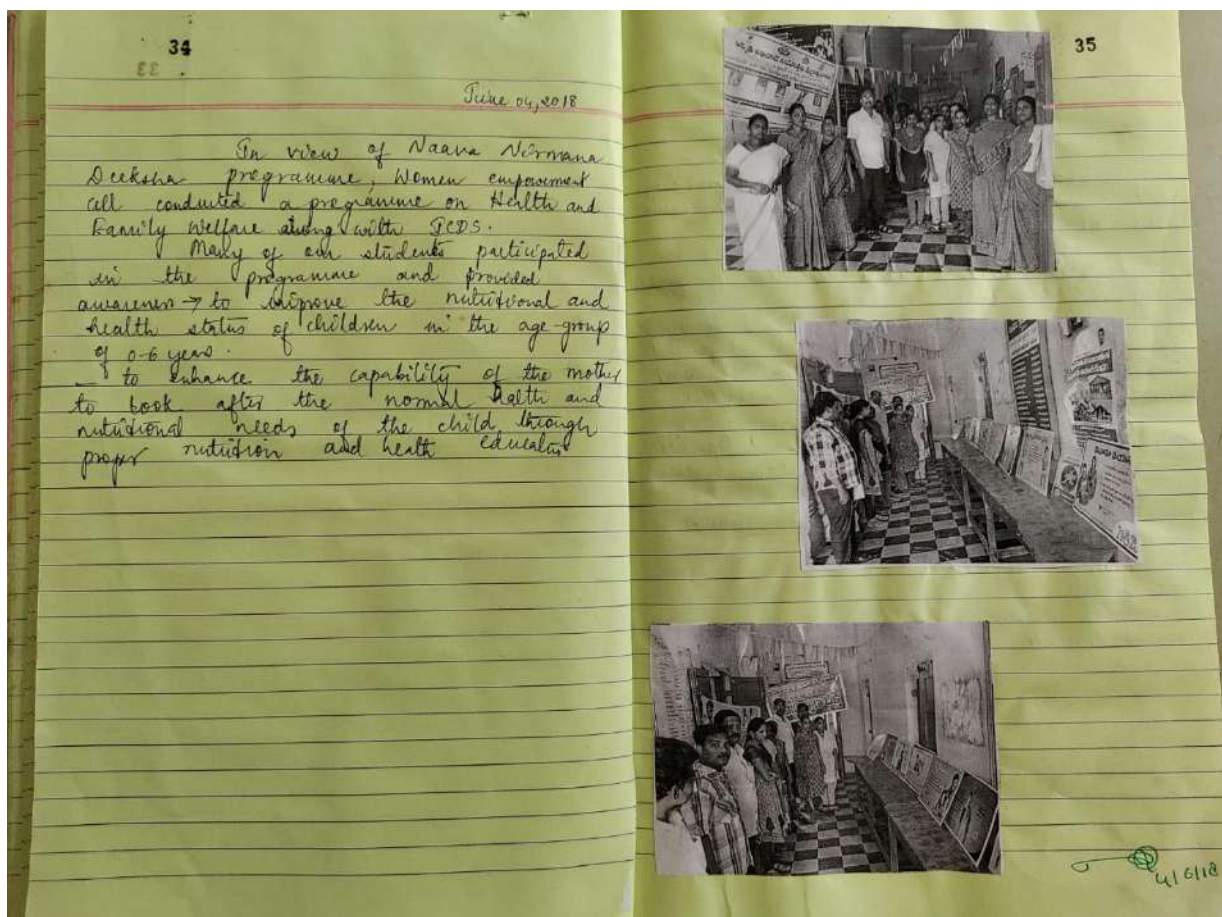 34
33
June 04, 2018
In view of Naava Nirmana
Deeksha programme, Women empowerment
cell conducted a programme on Health and
Family Welfare along with ICDS.
Many of our students participated
in the programme and provided
awareness → to improve the nutritional and
health status of children in the age-group
of 0-6 years.
— to enhance the capability of the mother
to look after the normal health and
nutritional needs of the child through
proper nutrition and heath education
35
4/6/18